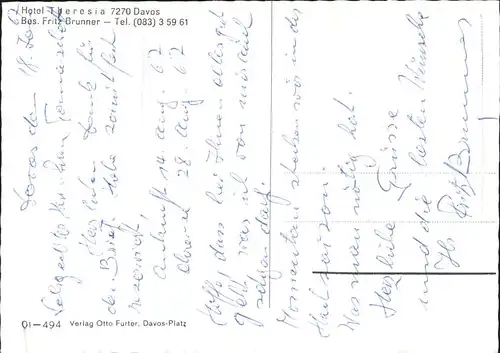 Hotel Theresia 7270 Davos
Bes. Fritz Brunner — Tel. (083) 3 59 61
Davos den 18.
Herr
Vielen Dank für
den Brief. Habe
reserviert
Ankunft 14. Aug. 67
Abreise 28. Aug. 67
Hoffe, dass bei Ihnen alles gut
geht was ich von mir auch
sagen darf.
Momentan stehen wir in der
Hochsaison.
Was man nötig hat.
Herzliche Grüsse
und die besten Wünsche
Ihr Fritz Brunner
01—494 Verlag Otto Furter, Davos-Platz